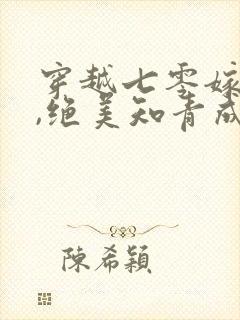 穿越七零嫁
,绝美知青成
陳希穎